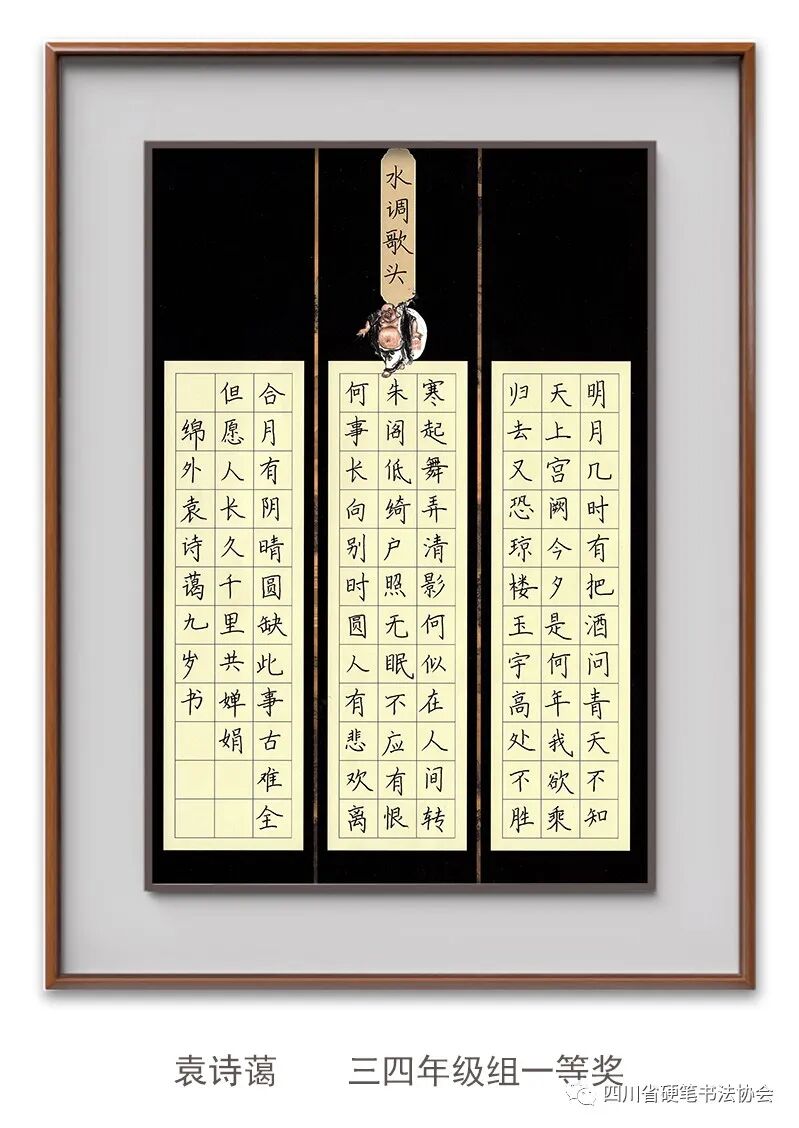 水调歌头
明月几时有把酒问青天不知
天上宫阙今夕是何年我欲乘
归去又恐琼楼玉宇高处不胜
寒起舞弄清影何似在人间转
朱阁低绮户照无眠不应有恨
何事长向别时圆人有悲欢离
合月有阴晴圆缺此事古难全
但愿人长久千里共婵娟
绵外袁诗蔼九岁书
袁诗蔼 三四年级组一等奖
四川省硬笔书法协会